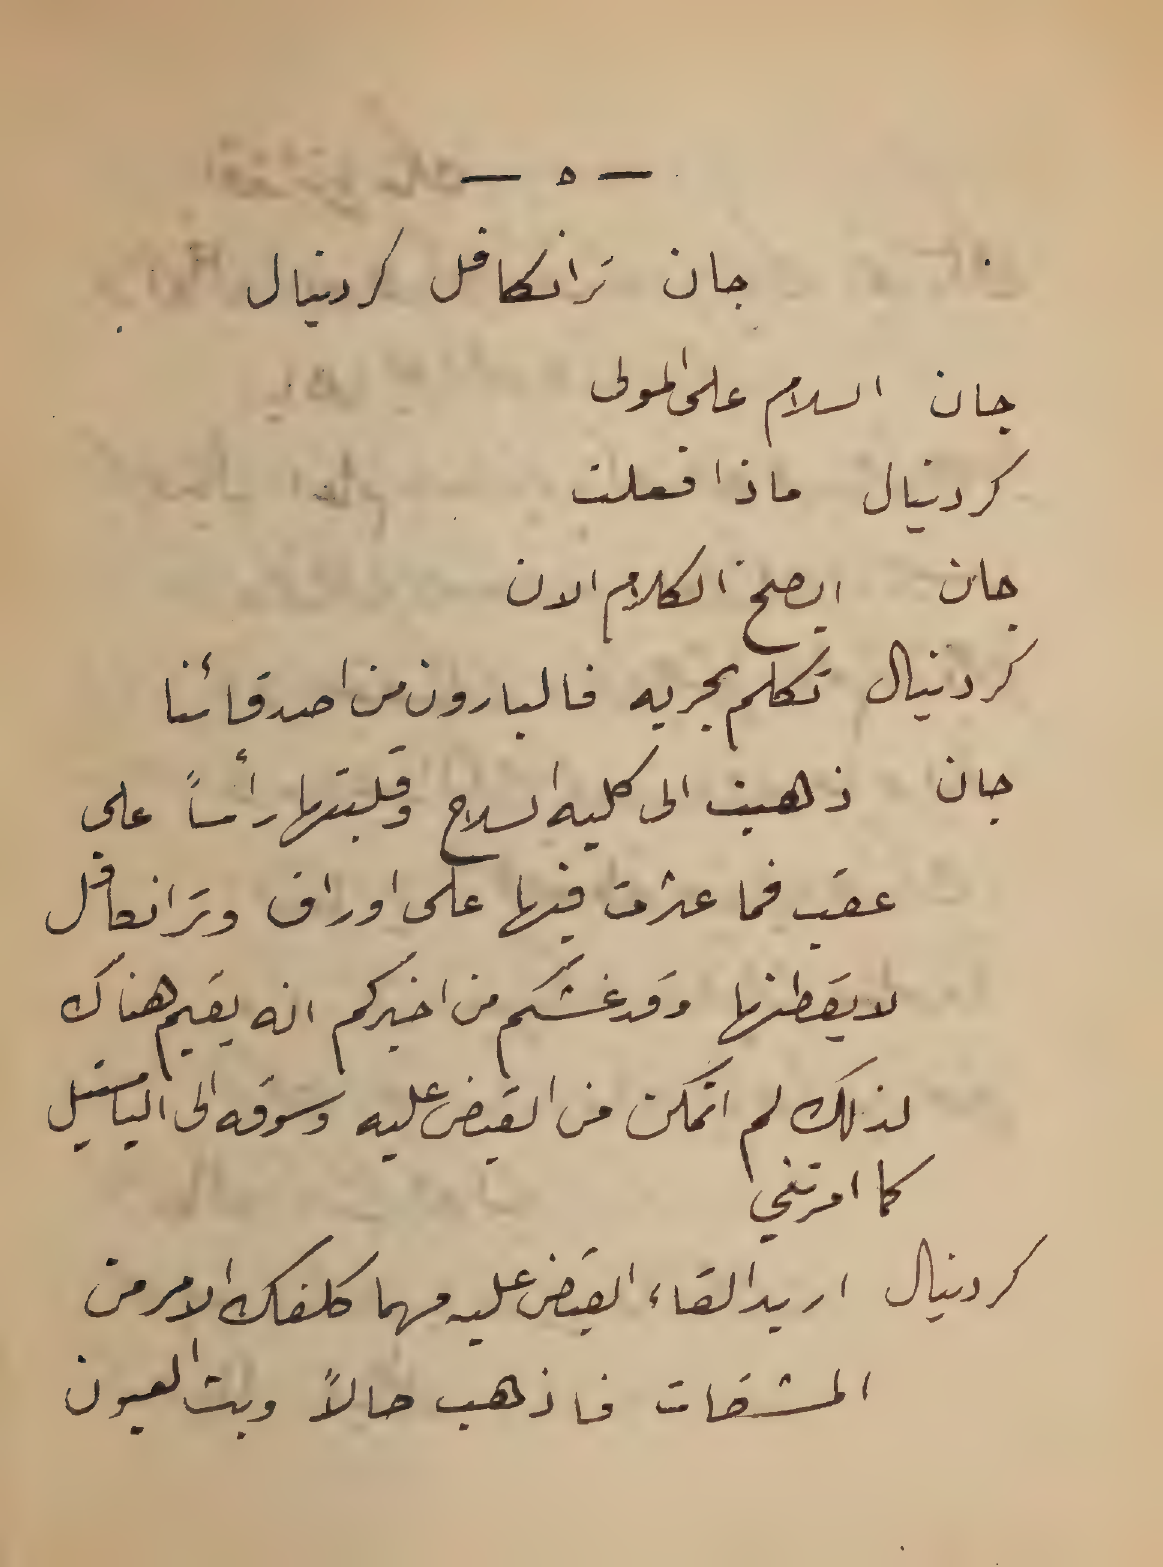 — ٥ —
جان ترانكافل كردينال
جان السلام على المولى
كردينال ماذا فعلت
جان ايصح الكلام الان
كردينال تكلم بحريه فالبارون من اصدقائنا
جان ذهبت الى كليه السلاح وقلبتها رأساً على
عقب فما عثرت فيها على اوراق وترانكافل
لا يقطنها وقد غشكم من اخبركم انه يقيم هناك
لذلك لم اتمكن من القبض عليه وسوقه الى الباستيل
كما امرتني
كردينال اريد القاء القبض عليه مهما كلفك الامر من
المشقات فاذهب حالاً وبث العيون